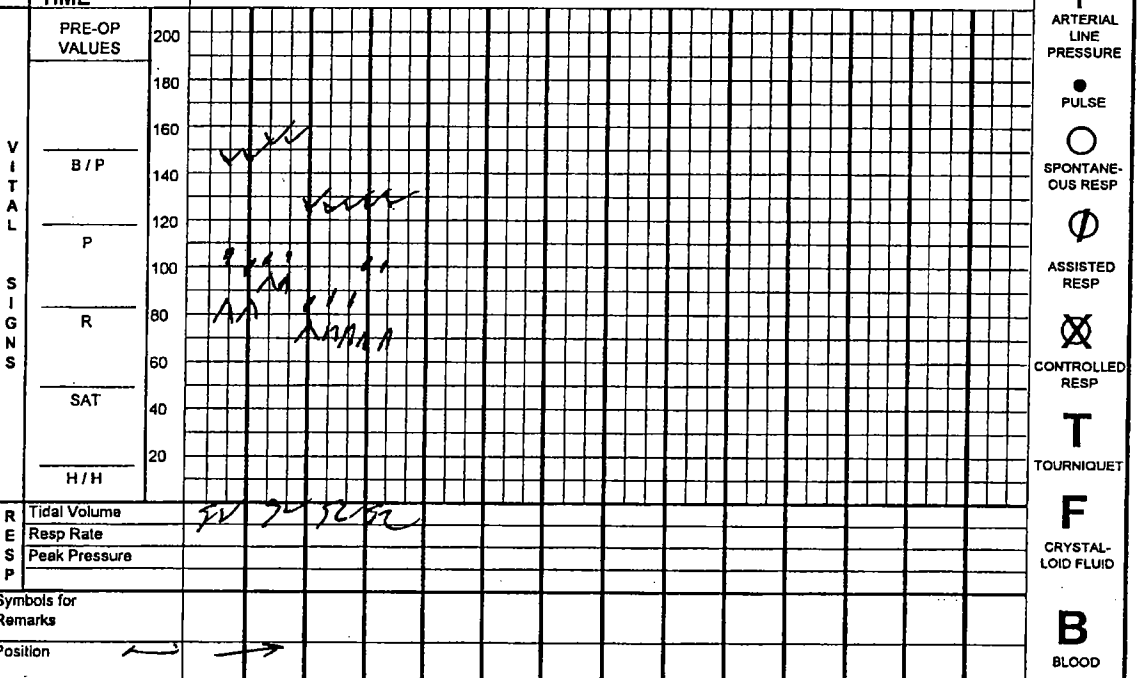 TIME
PRE-OP
VALUES
200
180
160
140
120
100
80
60
40
20
VITAL SIGNS
B / P
P
R
SAT
H / H
RESP
Tidal Volume
Resp Rate
Peak Pressure
Symbols for
Remarks
Position
ARTERIAL
LINE
PRESSURE
PULSE
SPONTANE-
OUS RESP
ASSISTED
RESP
CONTROLLED
RESP
T
TOURNIQUET
F
CRYSTAL-
LOID FLUID
B
BLOOD